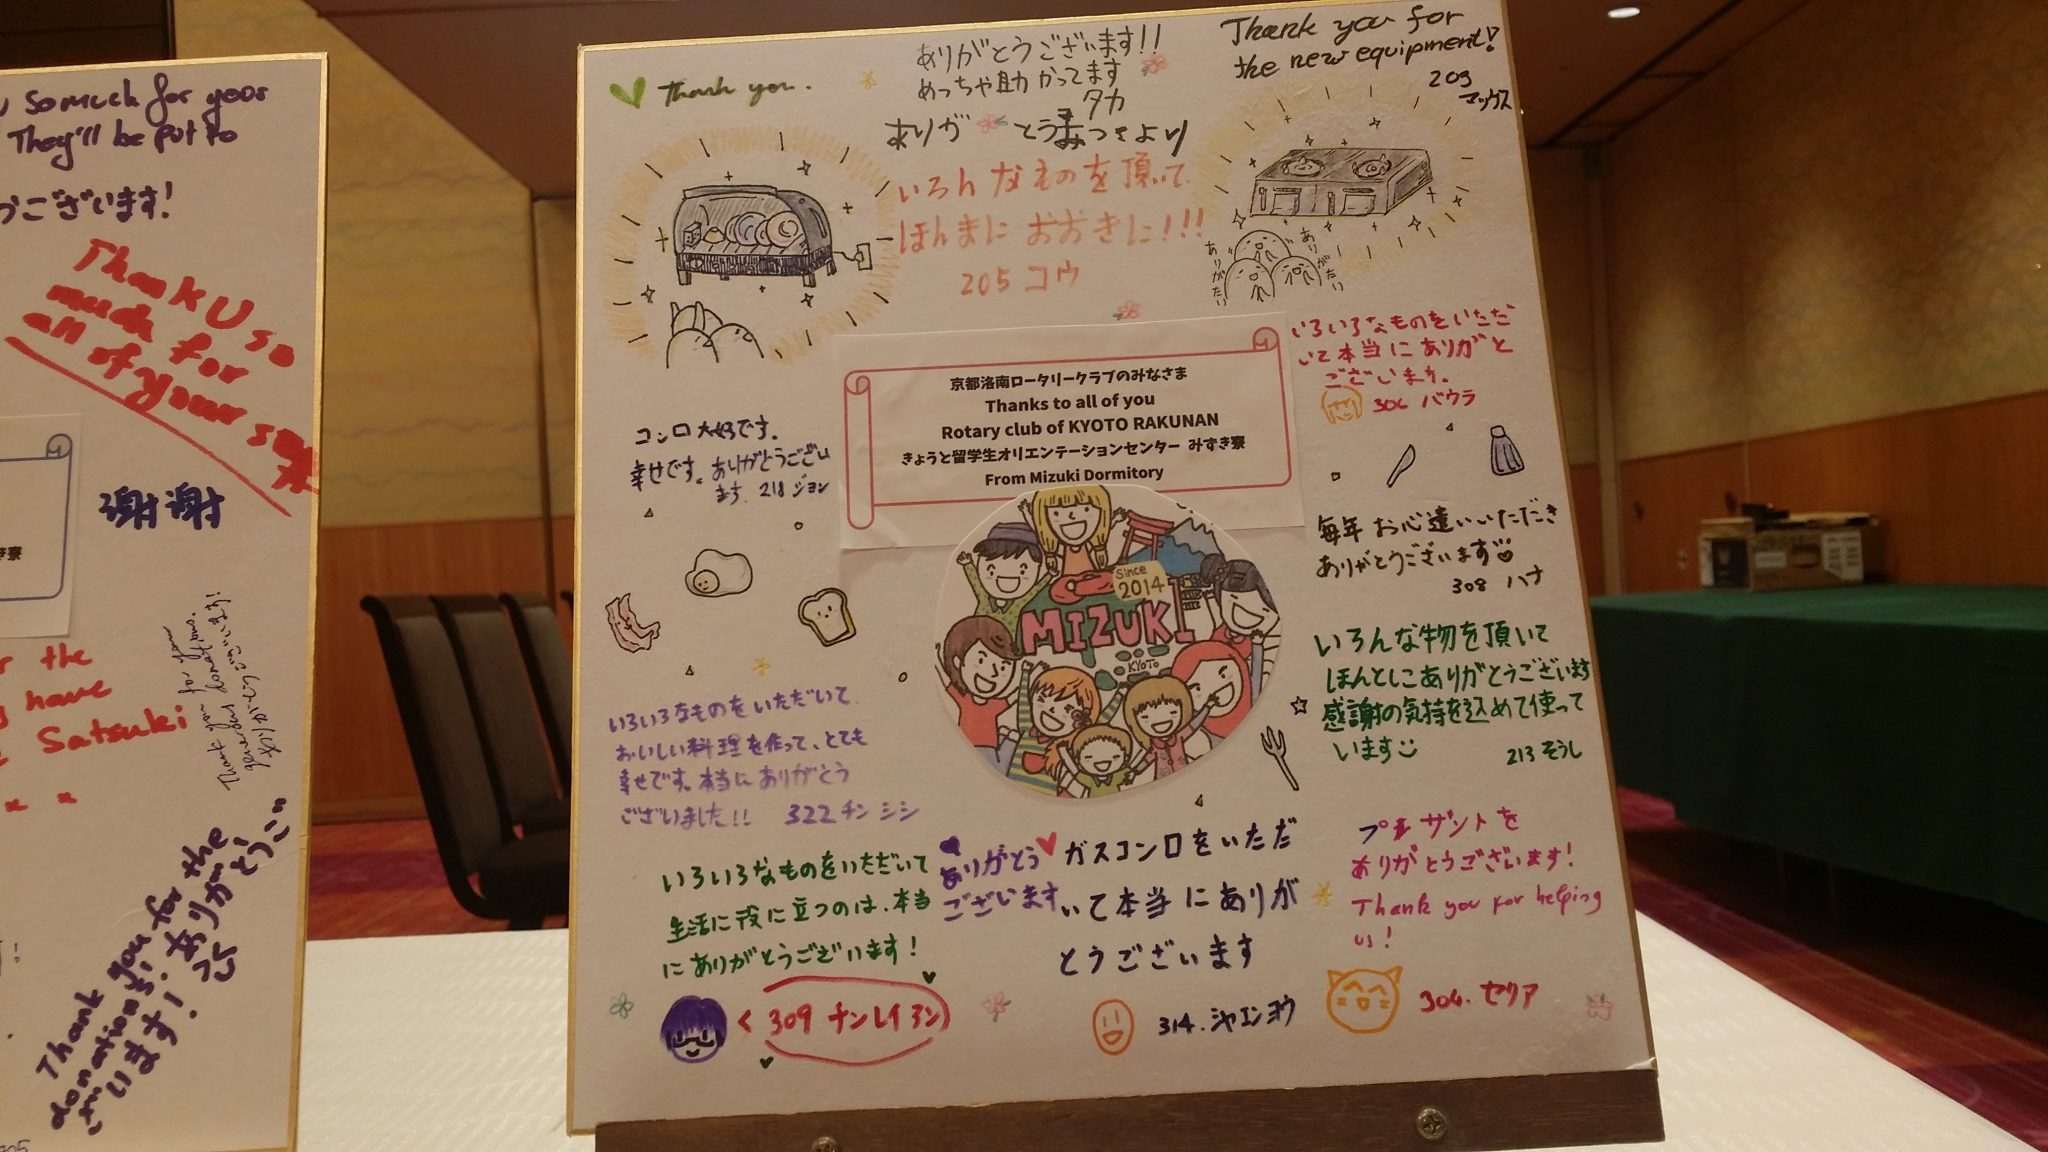 so much for your
They'll be put to
ございます!
Thank U so
much for
all of your
谢谢
寮
Thank you for your
generous donations.
ありがとうございます!
the
have
Satsuki
Thank you for the
donations! ありがとうござ
います!
Thank you.
ありがとうございます!!
めっちゃ助かってます
タカ
ありが とう
より
Thank you for
the new equipment!
209
マックス
いろんなものを頂いて
ほんまにおおきに!!!
205 コウ
ありがたい
ありがたい
京都洛南ロータリークラブのみなさま
Thanks to all of you
Rotary club of KYOTO RAKUNAN
きょうと留学生オリエンテーションセンター みずき寮
From Mizuki Dormitory
いろいろなものをいただ
いて本当にありがと
ございます。
306 バウラ
コンロ大好です。
幸せです。ありがとうござい
ます。218 ジョン
Since
2014
MIZUKI
KYOTO
毎年お心遣いいただき
ありがとうございます
308 ハナ
いろんな物を頂いて
ほんとしにありがとうございます
感謝の気持を込めて使って
います
213 そうし
いろいろなものをいただいて、
おいしい料理を作って、とても
幸せです。本当にありがとう
ございました!! 322 チン シシ
いろいろなものをいただいて
生活に役に立つのは、本当
にありがとうございます!
< 309 チンレイアン
ありがとう
ございます
ガスコンロをいただ
いて本当にありが
とうございます
314. シャエンヨウ
プレザントを
ありがとうございます!
Thank you for helping
us!
304. セリア